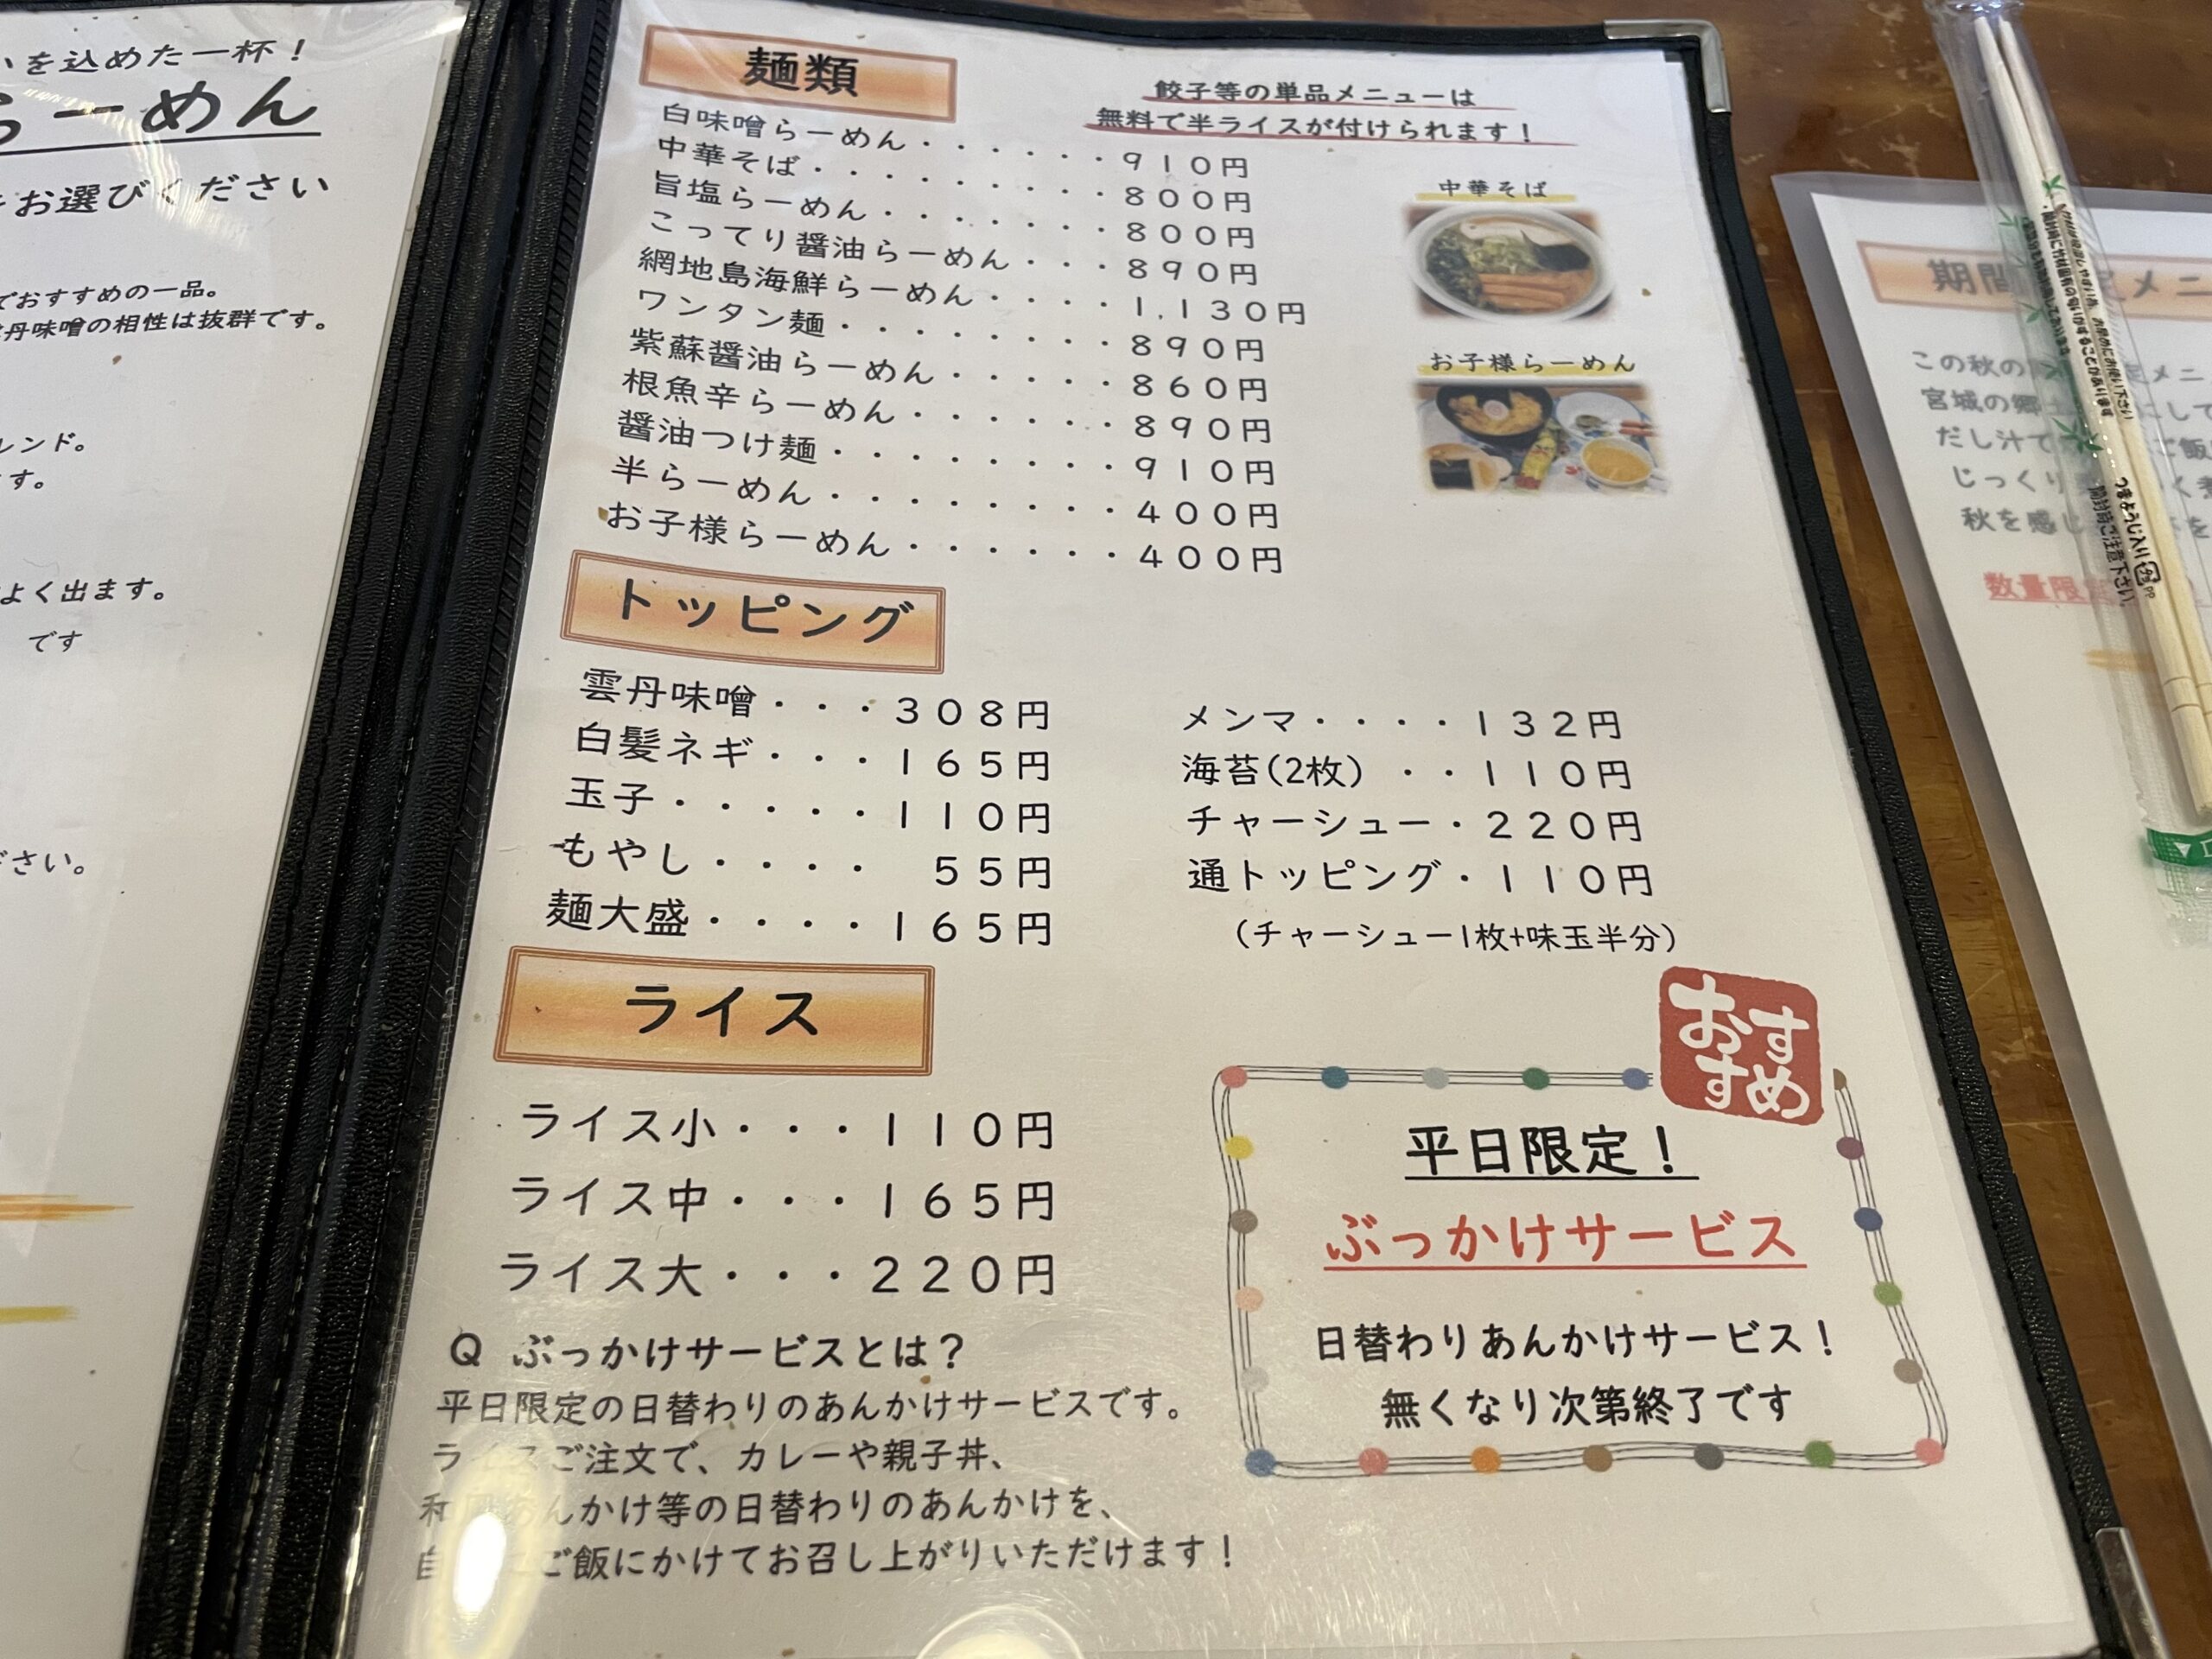 を込めた一杯！
らーめん
お選びください
でおすすめの一品。
丹味噌の相性は抜群です。
レンド。
す。
よく出ます。
です
ださい。
麺類
餃子等の単品メニューは
無料で半ライスが付けられます！
白味噌らーめん・・・・・・910円
中華そば・・・・・・・・・800円
旨塩らーめん・・・・・・・800円
こってり醤油らーめん・・・890円
網地島海鮮らーめん・・・・1,130円
ワンタン麺・・・・・・・・890円
紫蘇醤油らーめん・・・・・860円
根魚辛らーめん・・・・・・890円
醤油つけ麺・・・・・・・・910円
半らーめん・・・・・・・・400円
お子様らーめん・・・・・・400円
中華そば
お子様らーめん
トッピング
雲丹味噌・・・308円
白髪ネギ・・・165円
玉子・・・・・110円
もやし・・・・ 55円
麺大盛・・・・165円
メンマ・・・・132円
海苔(2枚) ・・110円
チャーシュー・220円
通トッピング・110円
(チャーシュー1枚+味玉半分)
ライス
ライス小・・・110円
ライス中・・・165円
ライス大・・・220円
Q ぶっかけサービスとは？
平日限定の日替わりのあんかけサービスです。
ライスご注文で、カレーや親子丼、
和 あんかけ等の日替わりのあんかけを、
ご飯にかけてお召し上がりいただけます！
おすすめ
平日限定！
ぶっかけサービス
日替わりあんかけサービス！
無くなり次第終了です
期間 メニ
この秋の メニ
宮城の郷 にして
だし汁で ご飯
じっくり
秋を感じ
数量限
つまようじ入り
開封時ご注意下さい。